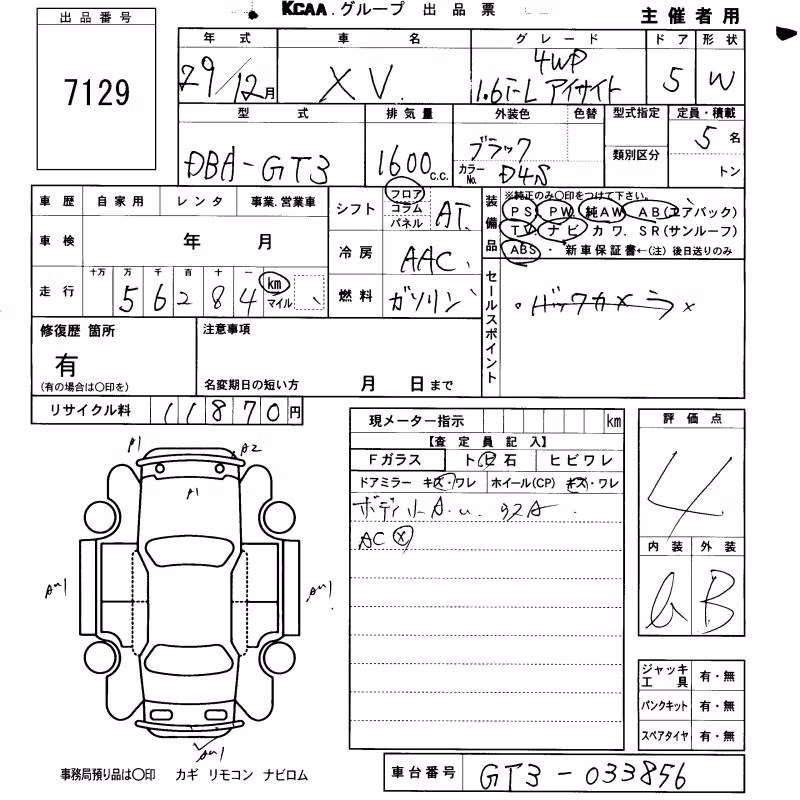 KCAA.グループ 出品票
主催者用
出品番号
7129
年式 車名 グレード ドア 形状
29/12月 XV 4WD 1.6i-L アイサイト 5 W
型式 排気量 外装色 色替 型式指定 定員・積載
DBA-GT3 1600c.c. ブラック 5名
カラーNo. D4S 類別区分 トン
車歴 自家用 レンタ 事業.営業車
車検 年 月
走行 十万 万 千 百 十 一
56284 km マイル
シフト フロア コラム パネル AT
冷房 AAC
燃料 ガソリン
装備品
※純正のみ○印をつけて下さい。
PS PW 純AW AB(エアバック)
TV ナビ カワ. SR(サンルーフ)
ABS・ 新車保証書←(注)後日送りのみ
セールスポイント
・バックカメラ
修復歴 箇所
有
(有の場合は○印を)
注意事項
名変期日の短い方 月 日まで
リサイクル料 11870円
現メーター指示 km
【査定員記入】
Fガラス ト(ビ)石 ヒビワレ
ドアミラー キズ・ワレ ホイール(CP) キズ・ワレ
ボディ小A.u.
AC ×
評価点
4
内装 外装
B
A1 A2
A1
ジャッキ工具 有・無
パンクキット 有・無
スペアタイヤ 有・無
事務局預り品は○印 カギ リモコン ナビロム
車台番号 GT3-033856